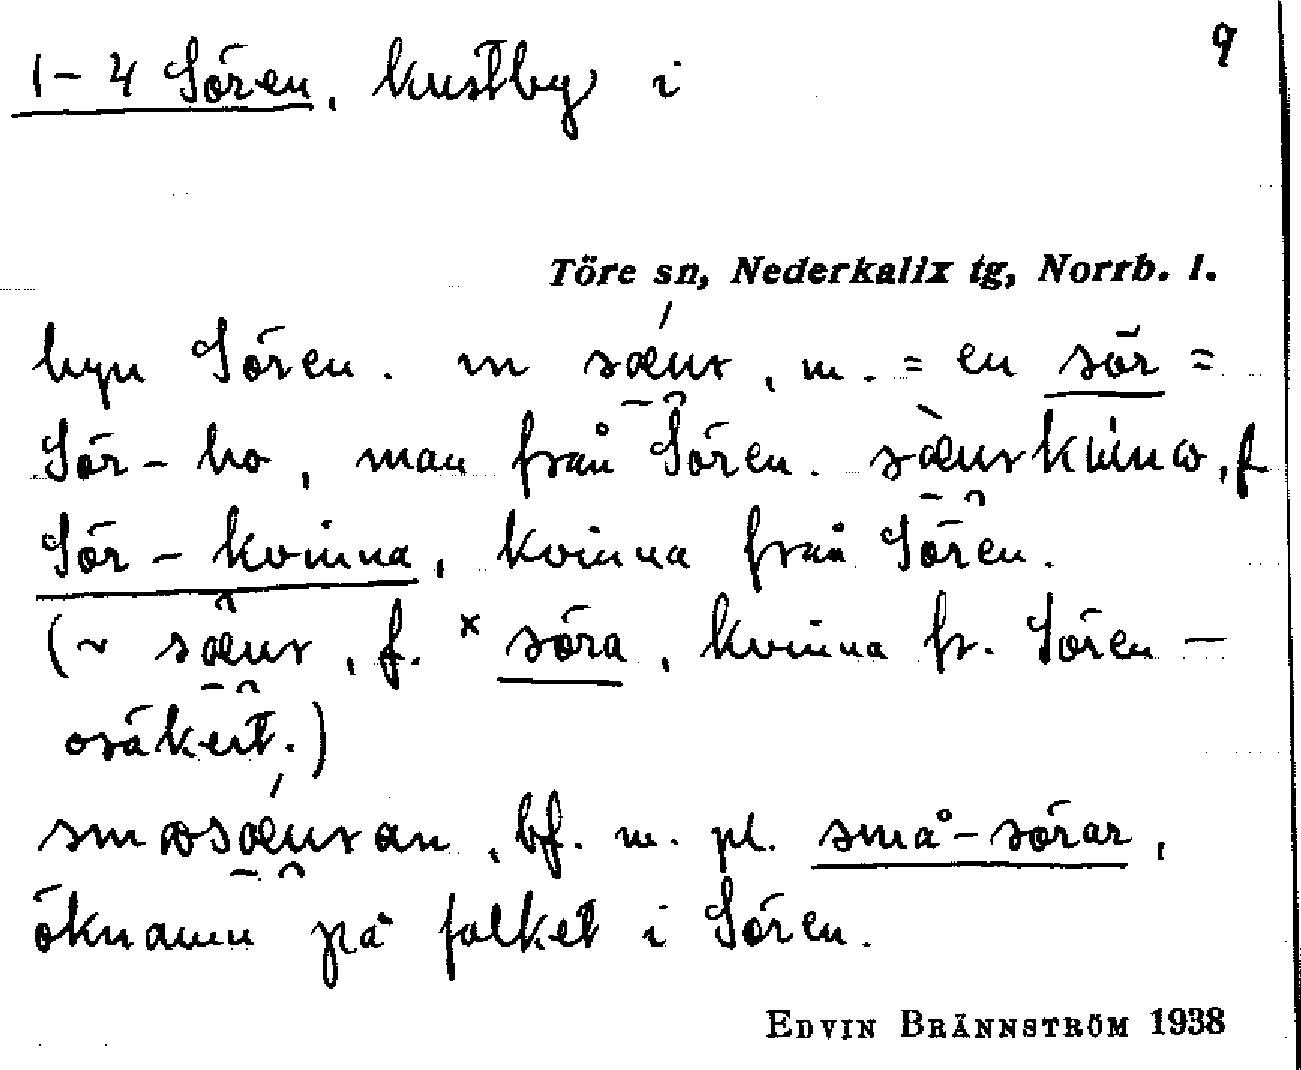 9
1-4 Sören, kustby i
Töre sn, Nederkalix tg, Norrb. l.
byn Sören. m sæur, m. = en sör =
Sör-bo, man från Sören. sæurkuinɷ, f
Sör-kvinna, kvinna från Sören.
(~ sæur, f. × söra, kvinna fr. Sören -
osäkert.)
smɷsæuran, bf. m. pl. små-sörar,
öknamn på folket i Sören.
EDVIN BRÄNNSTRÖM 1938